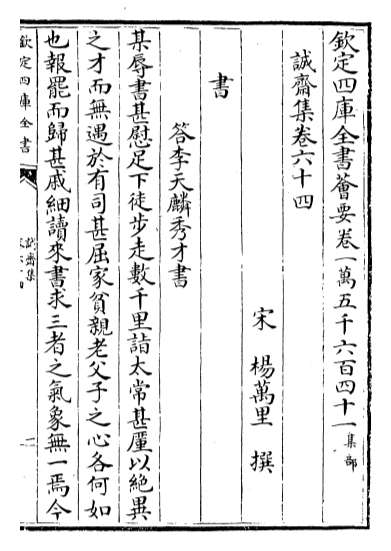 欽定四庫全書薈要卷一萬五千六百四十一集部
誠齋集卷六十四
宋 楊萬里 撰
書
答李天麟秀才書
某辱書甚慰足下徒步走數千里詣太常甚厪以絶異
之才而無遇於有司甚屈家貧親老父子之心各何如
也報罷而歸甚戚細讀來書求三者之氣象無一焉今
欽定四庫全書
誠齋集